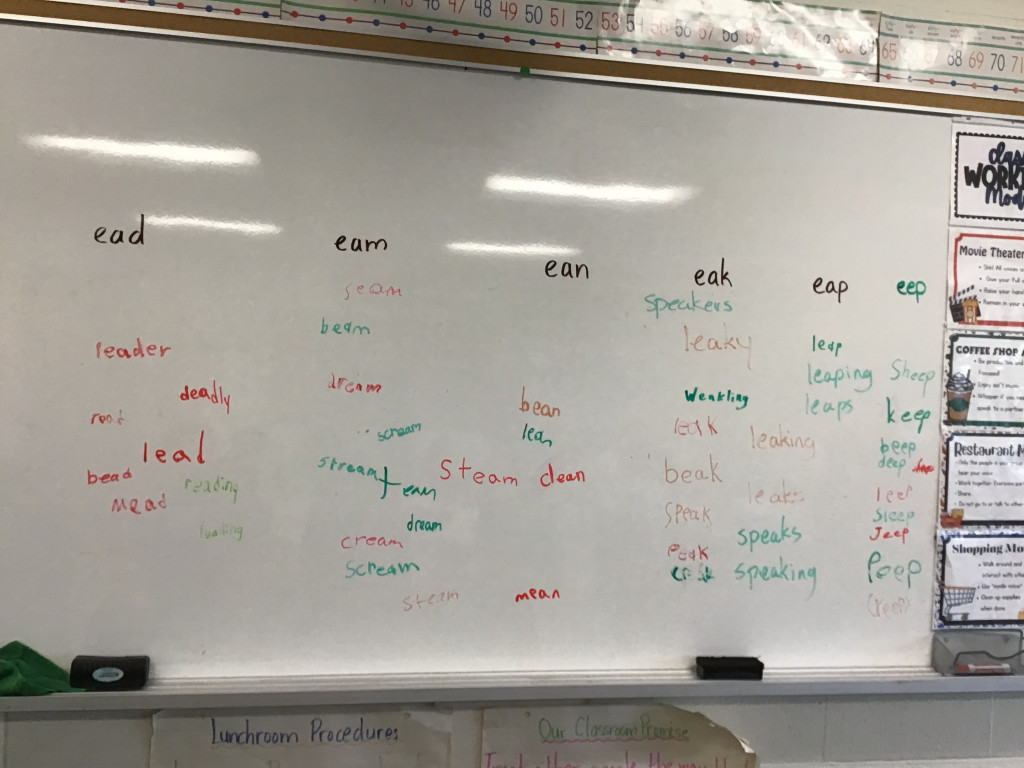 46 47 48 49 50 51 52 53 54 55 56 57 58 59 65 68 69 70 71
ead
leader
deadly
lead
bead
mead
reading
eam
seam
beam
dream
scream
stream
team
dream
cream
scream
steam
ean
bean
lean
steam clean
mean
eak
speakers
leaky
Weakling
leak
leaking
beak
leaks
speak
speaks
peak
speaking
eap
leap
leaping
leaps
eep
Sheep
keep
beep
deep
Sleep
Jeep
Peep
(reep)
Class
WORK
Mod
Movie Theater
COFFEE SHOP
Restaurant M
Shopping Mo
Walk around and
interact with othe
Clean up supplies
when done
Lunchroom Procedures
Our Classroom Promise